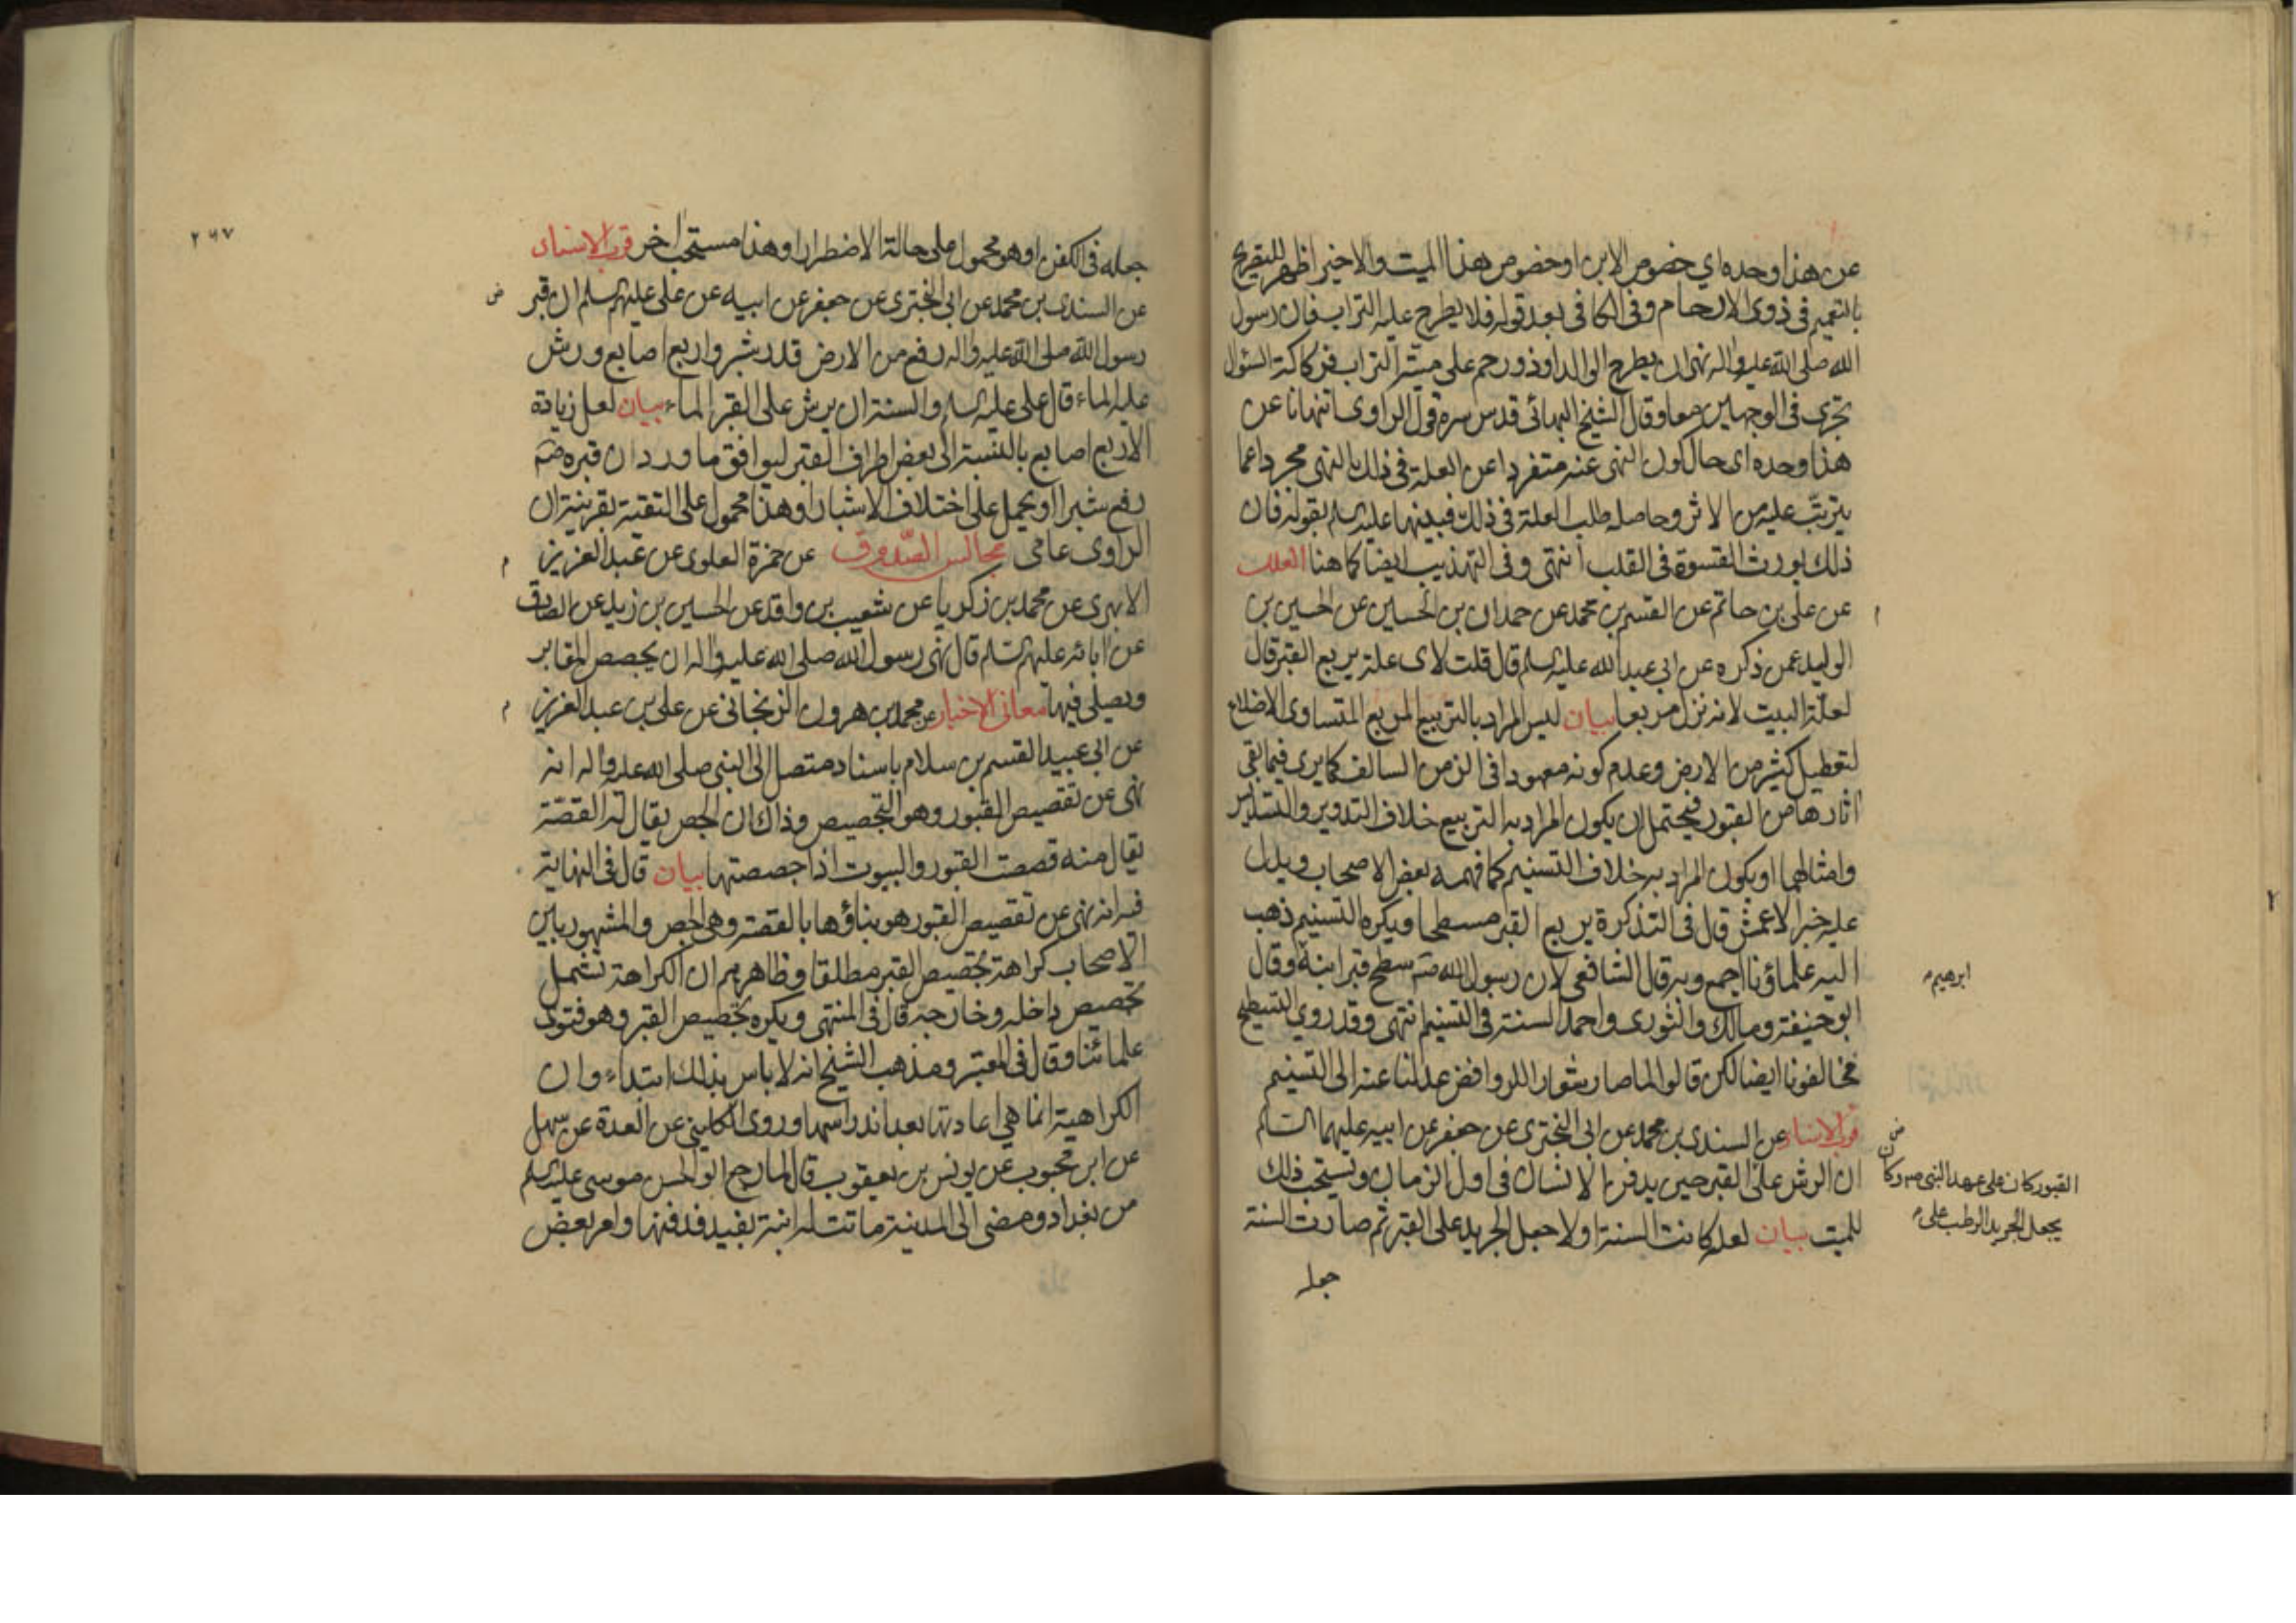 عن هذا وحده اي خصوص الابن او خصوص هذا الميت والاخير اظهر للتصريح
بالتعميم في ذوي الارحام وفي الكافي بعد قوله فلا يطرح عليه التراب فان رسول
الله صلى الله عليه واله نهى ان يطرح الوالد او ذو رحم على ميته التراب فركاكة السؤال
تجرى في الوجهين معا وقال الشيخ البهائي قدس سره قول الراوى اتنهانا عن
هذا وحده اى حال كون النهى عنه منفردا عن العلة في ذلك النهى مجردا عما
يترتب عليه من الاثر وحاصله طلب العلة في ذلك فبينها عليه السلم بقوله فان
ذلك يورث القسوة في القلب انتهى وفي التهذيب ايضا كما هنا العلل
م
عن على بن حاتم عن القسم بن محمد عن حمدان بن الحسين عن الحسين بن
الوليد عمن ذكره عن ابى عبد الله عليه السلم قال قلت لاى علة يربع القبر قال
لعلة البيت لانه نزل مربعا بيان ليس المراد بالتربيع المربع المتساوى الاضلاع
لتعطيل كثير من الارض وعدم كونه معهودا في الزمن السالف كما يرى فيما بقى
اثارها من القبور فيحتمل ان يكون المراد به التربيع خلاف التدوير والتسديس
وامثالهما او يكون المراد به خلاف التسنيم كما فهمه بعض الاصحاب ويدل
عليه خبر الاعمش قال في التذكرة يربع القبر مسطحا ويكره التسنيم ذهب
اليه علماؤنا اجمع وبه قال الشافعى لان رسول الله صم سطح قبر ابنه وقال
ابرهيم
ابو حنيفة ومالك والثورى واحمد السنة في التسنيم انتهى وقد روي التسطيح
مخالفونا ايضا لكن قالوا لما صار شعار اللروافض عدلنا عنه الى التسنيم
ض
قرب الاسناد عن السندى بن محمد عن ابى البخترى عن جعفر عن ابيه عليهما السلم
ان الرش على القبر حين يدفن الانسان في اول الزمان ويستحب ذلك
القبور كان على عهد النبي ص وكان
يجعل الجريد الرطب على
للميت بيان لعله كانت السنة اولا جعل الجريد على القبر ثم صارت السنة
جعله
٢٦٧
جعله في الكفن او هو محمول على حالة الاضطرار او هذا مستحب اخر قرب الاسناد
ض
عن السندى بن محمد عن ابى البخترى عن جعفر عن ابيه عن على عليهم السلم ان قبر
رسول الله صلى الله عليه واله رفع من الارض قدر شبر واربع اصابع ورش
عليه الماء قال على عليه السلم والسنة ان يرش على القبر الماء بيان لعل زيادة
الاربع اصابع بالنسبة الى بعض اطراف القبر ليوافق ما ورد ان قبره صم
رفع شبرا او يحمل على اختلاف الاشبار او هذا محمول على التقية بقرينة ان
الراوى عامى مجالس الصدوق عن حمزة العلوى عن عبد العزيز
م
الابهرى عن محمد بن زكريا عن شعيب بن واقد عن الحسين بن زيد عن الصادق
عن ابائه عليهم السلم قال نهى رسول الله صلى الله عليه واله ان يجصص المقابر
ويصلى فيها معاني الاخبار عن محمد بن هرون الزنجانى عن على بن عبد العزيز
م
عن ابى عبيد القسم بن سلام باسناد متصل الى النبى صلى الله عليه واله انه
نهى عن تقصيص القبور وهو التجصيص وذلك ان الجص يقال له القصة
يقال منه قصصت القبور والبيوت اذا جصصتها بيان قال في النهاية
فيه انه نهى عن تقصيص القبور هو بناؤها بالقصة وهى الجص والمشهور بين
الاصحاب كراهة تجصيص القبر مطلقا وظاهرهم ان الكراهة تشمل
تجصيص داخله وخارجه قال في المنتهى ويكره تجصيص القبر وهو فتوى
علمائنا وقال في المعتبر ومذهب الشيخ انه لا باس بذلك ابتداء وان
الكراهية انما هي اعادتها بعد اندراسها وروى الكلينى عن العدة عن سهل
عن ابن محبوب عن يونس بن يعقوب قال لما رجع ابو الحسن موسى عليه السلم
من بغداد ومضى الى المدينة ماتت له ابنة بفيد فدفنها وامر بعض